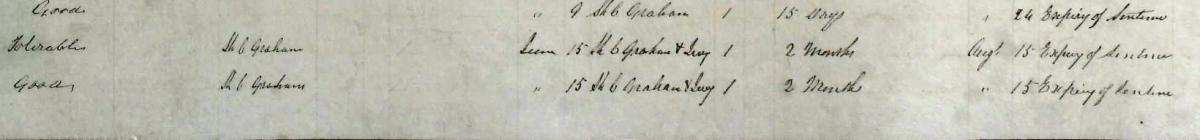 Good " 9 Sh C Graham 1 15 Days " 24 Expiry of Sentence
Tolerable Sh C Graham June 15 Sh C Graham & Jury 1 2 Months Augt 15 Expiry of Sentence
Good Sh C Graham " 15 Sh C Graham & Jury 1 2 Month " 15 Expiry of Sentence